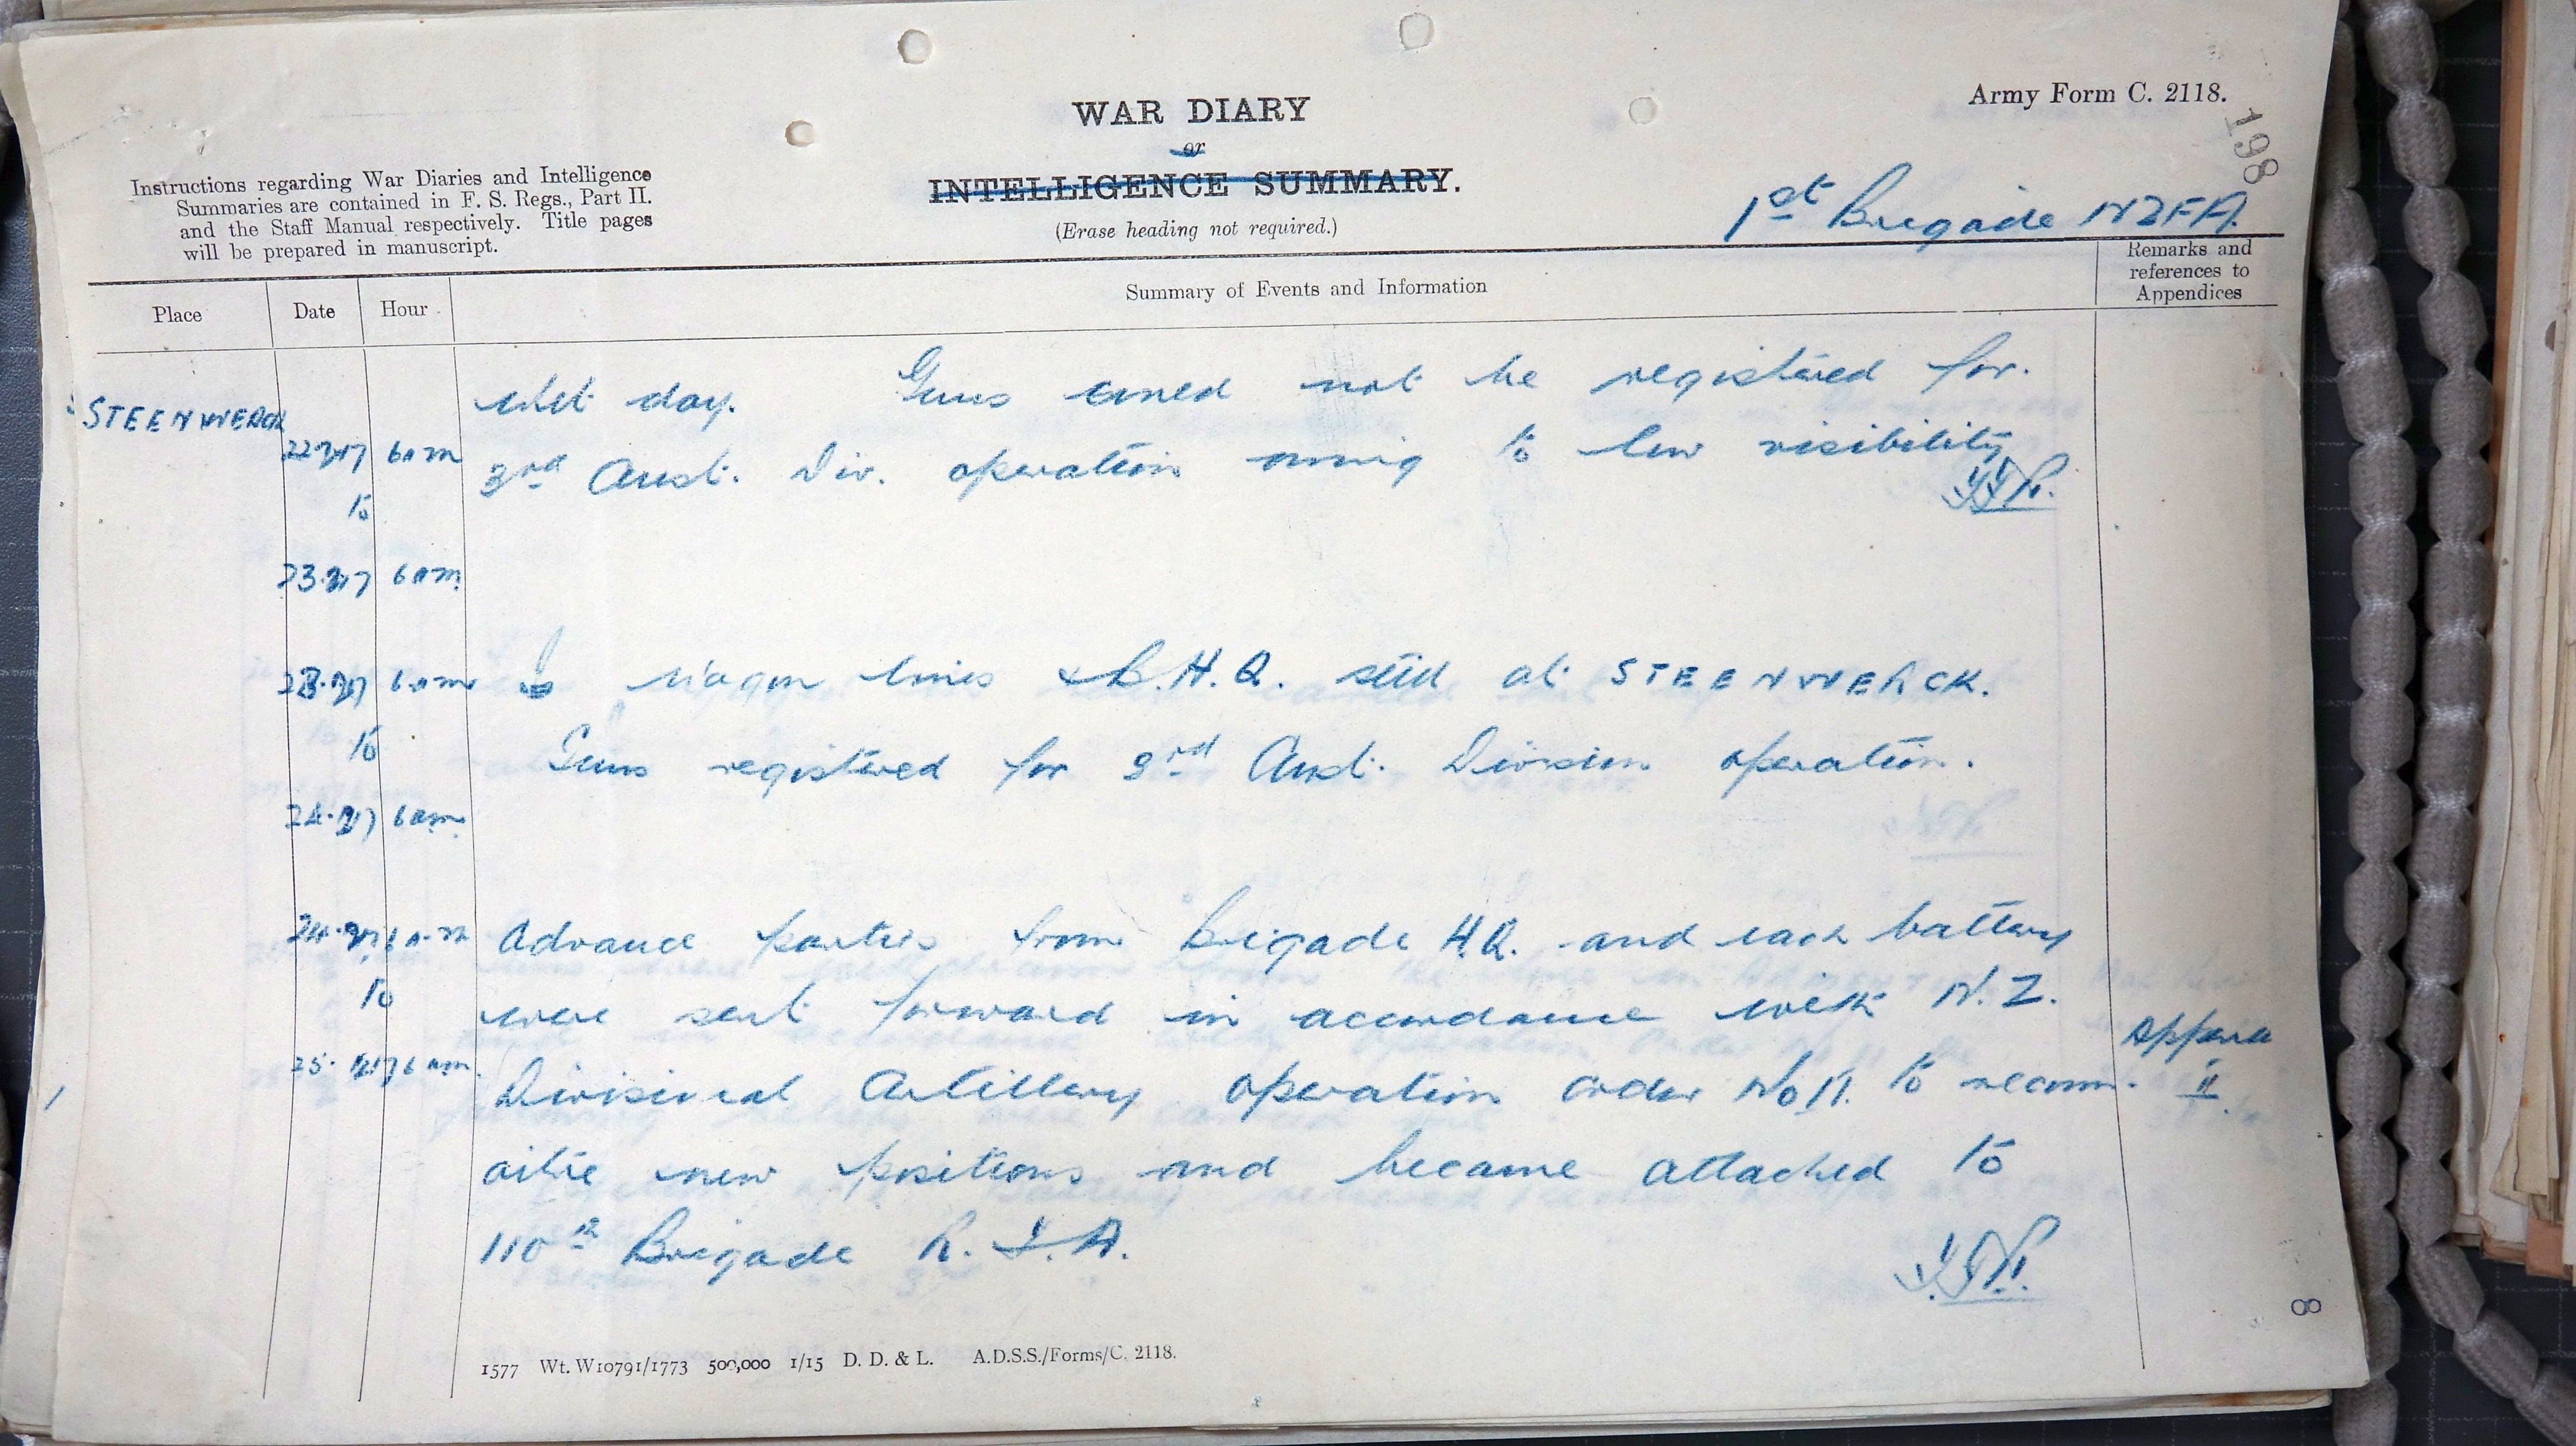 Army Form C. 2118.
198
WAR DIARY
or
INTELLIGENCE SUMMARY.
(Erase heading not required.)
Instructions regarding War Diaries and Intelligence
Summaries are contained in F. S. Regs., Part II.
and the Staff Manual respectively. Title pages
will be prepared in manuscript.
1st Brigade NZFA.
Place Date Hour Summary of Events and Information Remarks and references to Appendices
STEENWERCK
22.2.17 6am
to
23.2.17 6am
wet day. Guns could not be registered for
3rd Aust. Div. operation owing to low visibility
23.2.17 6am
to
24.2.17 6am
Wagon lines & B.H.Q. still at STEENWERCK.
Guns registered for 3rd Aust. Division operation.
24.2.17 6am
to
25.2.17 6am
Advance parties from Brigade H.Q. and each battery
were sent forward in accordance with N.Z.
Divisional Artillery operation order No 11. to reconn-
oitre new positions and became attached to
110th Brigade R.F.A.
Appen
II
8
1577 Wt. W10791/1773 500,000 1/15 D. D. & L. A.D.S.S./Forms/C. 2118.